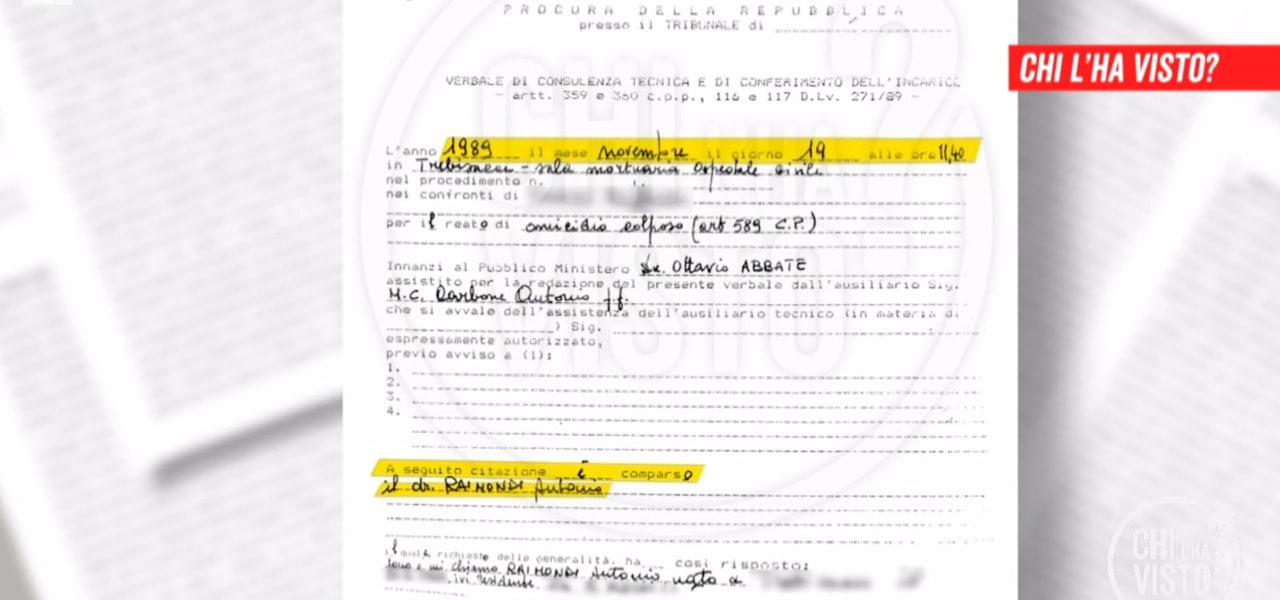 PROCURA DELLA REPUBBLICA
presso il TRIBUNALE di
CHI L'HA VISTO?
VERBALE DI CONSULENZA TECNICA E DI CONFERIMENTO DELL'INCARICO
- artt. 359 e 360 c.p.p., 116 e 117 D.Lv. 271/89 -
L'anno 1989 il mese novembre il giorno 19 alle ore 11,40
in Trebisacce - sala mortuaria Ospedale Civile
nel procedimento n.
nei confronti di
per il reato di omicidio colposo (art 589 C.P.)
Innanzi al Pubblico Ministero Dr. Ottavio ABBATE
assistito per la redazione del presente verbale dall'ausiliario Sig.
M.C. Carbone Antonio ff.
che si avvale dell'assistenza dell'ausiliario tecnico (in materia di
) Sig.
espressamente autorizzato,
previo avviso a (1):
1.
2.
3.
4.
A seguito citazione è comparso
il dr. RAIMONDI Antonio
il quale richiesto delle generalità, ha così risposto:
sono e mi chiamo RAIMONDI Antonio nato a
ivi residente
CHI L'HA VISTO?